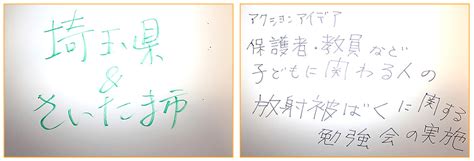 埼玉県
&
さいたま市
アクションアイデア
保護者・教員など
子どもに関わる人の
放射被ばくに関する
勉強会の実施